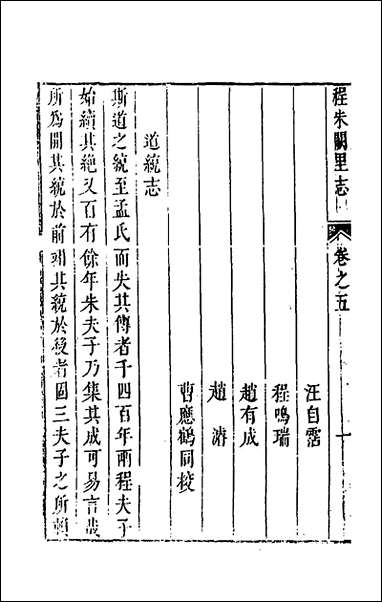 程朱闕里志 卷之五 一
汪自霑
程鳴瑞
趙有成
趙濬
曹應鶴同校
道統志
斯道之統至孟氏而失其傳者千四百年兩程夫子
始續其絶又百有餘年朱夫子乃集其成可易言哉
所為開其統於前翊其統於後者固三夫子之所賴